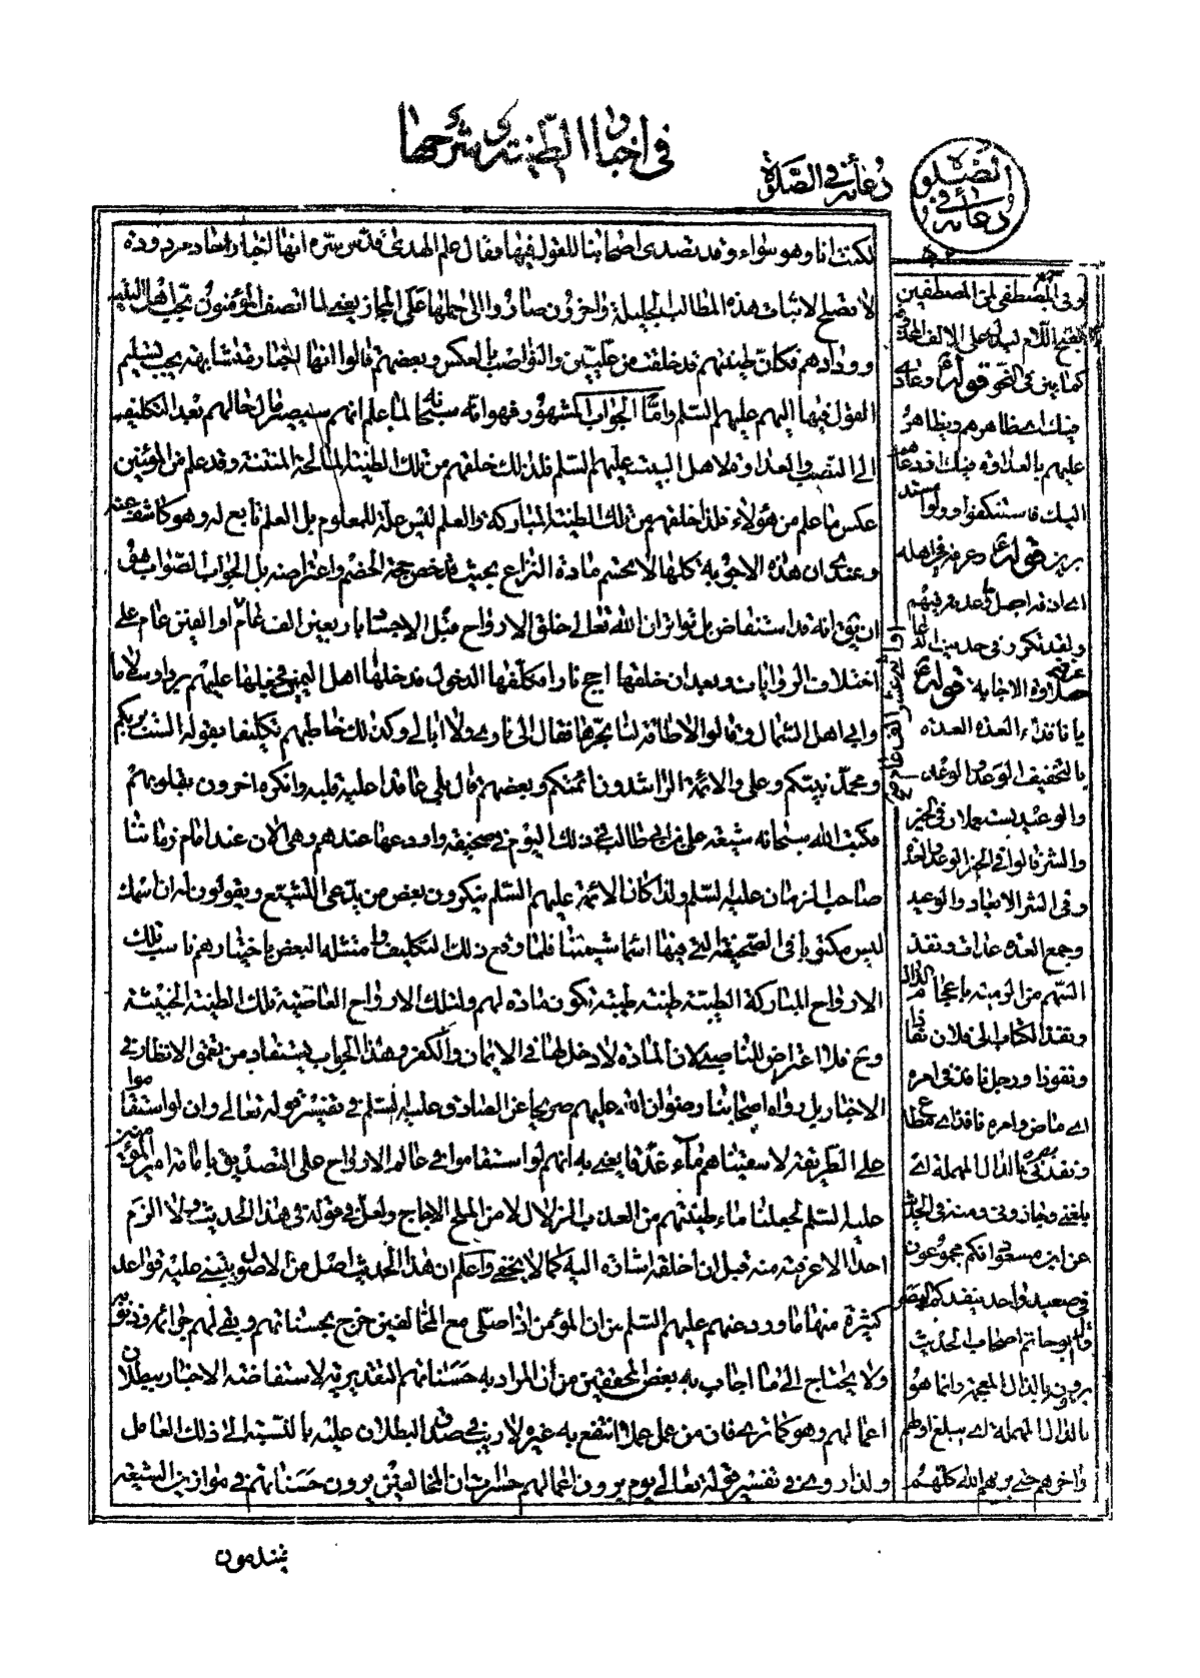 في اخبار الطينة و شرحها
دعائه في الصلوة
الصلوة
دعائه في
لكنت انا وهو سواء وقد تصدى اصحابنا للقول فيها فقال علم الهدى قدس سره انها اخبار احاد مردودة
لا تصلح لاثبات هذه المطالب الجليلة واخرون صاروا الى حملها على المجاز يعني لما اتصف المؤمنون بحب اهل البيت
وودادهم فكان طينتهم قد خلقت من عليين والنواصب بالعكس وبعضهم قالوا انها اخبار متشابهة يجب تسليم
القول فيها اليهم عليهم السلم واما الجواب المشهور فهو انه سبحانه لما علم انهم سيصير حالهم بعد التكليف
الى النصب والعداوة لاهل البيت عليهم السلم فلذلك خلقهم من تلك الطينة المالحة المنتنة وقد علم من المؤمنين
عكس ما علم من هؤلاء فلذا خلقهم من تلك الطينة المباركة والعلم ليس علة للمعلوم بل العلم تابع له وهو كاشف عنه
وعندي ان هذه الاجوبة كلها لا يحسم مادة النزاع بحيث تدحض حجة الخصم واعتراضه بل الجواب الصواب هو
ان يق انه قد استفاض بل تواتر ان الله تعالى خلق الارواح قبل الاجساد باربعين الف عام او الفين عام على
اختلاف الروايات وبعد ان خلقها اجج نارا مكلفها الدخول فدخلها اهل اليمين فجعلها عليهم بردا وسلاما
وابى اهل الشمال وقالوا لا طاقة لنا بحرها فقال الى ناري ولا ابالي وكذلك خاطبهم تكليفا بقوله الست بربكم
ومحمد نبيكم وعلي والائمة الراشدون ائمتكم وبعضهم قال بلى عاقدا عليه قلبه وانكره اخرون بقلوبهم
فكتب الله سبحانه شيعة علي بن ابي طالب في ذلك اليوم في صحيفة واودعها عندهم وهي الان عند امام زماننا
صاحب الزمان عليه السلم ولذا كان الائمة عليهم السلم ينكرون بعض من يدعى التشيع ويقولون له ان اسمك
ليس مكتوبا في الصحيفة التي فيها اسماء شيعتنا فلما وقع ذلك التكليف وامتثله البعض باختيارهم ناسب تلك
الارواح المباركة الطيبة طينة طيبة تكون مادة لهم ولتلك الارواح العاصية تلك الطينة الخبيثة
وح فلا اعتراض للناصبي لان المادة لا دخل لها في الايمان والكفر وهذا الجواب يستفاد من تعمق الانظار في
الاخبار بل رواه اصحابنا رضوان الله عليهم صريحا عن الصادق عليه السلم في تفسير قوله تعالى وان لو استقاموا
على الطريقة لاسقيناهم ماء غدقا يعني به انهم لو استقاموا في عالم الارواح على التصديق بامامة امير المؤمنين
عليه السلم لجعلنا ماء طينتهم من العذب الزلال لا من الملح الاجاج ولعل في قوله في هذا الحديث ولا الزم
احدا الا عرفته منه قبل ان اخلقه اشارة اليه كما لا يخفى واعلم ان هذا الحديث اصل من الاصول يبتني عليه قواعد
كثيرة منها ما ورد عنهم عليهم السلم من ان المؤمن اذا صلى مع المخالفين خرج بحسناتهم وبقى لهم جرائمه وذنوبه
ولا يحتاج الى ما اجاب به بعض المحققين من ان المراد به حسناتهم التقديرية لاستفاضة الاخبار ببطلان
اعمالهم وهو كما ترى فان من عمل عملا انتفع به غيره لا ريب في صدق البطلان عليه بالنسبة الى ذلك العامل
ولذا روى في تفسير قوله تعالى يوم يرون اعمالهم حسرات ان المخالفين يرون حسناتهم في موازين الشيعة
وفي المصطفى لمن المصطفين
بفتح اللام ليدل على الالف المحذوفة
كما بين في النحو قوله وعاد
فيك اي ظاهرهم ويظاهر
عليهم بالعداوة فيك اذ دعاهم
اليك فاستنكفوا وولوا
قوله وعرفه في اهله
ولقد تكرر في حديث الدعاء
صلاوة الاجابة قوله
العدة
بالتخفيف الوعد والوعد
والوعيد يستعملان في الخير
والشر قالوا في الخير الوعد والعدة
وفي الشر الايعاد والوعيد
وجمع العدة عدات ونفذ
السهم من الرمية باعجام الذال
ونفذ الكتاب الى فلان نفاذا
ونفوذا ورجل نافذ في امره
اي ماض وامره نافذ اي مطاع
ونفدني بالدال المهملة اي
بلغني وجاوزني ومنه في الحديث
عن ابن مسعود انكم مجموعون
في صعيد واحد ينفدكم البصر
قال ابو حاتم اصحاب الحديث
يروونه بالذال المعجمة وانما هو
بالدال المهملة اي يبلغ اولهم
واخرهم حتى يريهم الله كلهم
يندمون